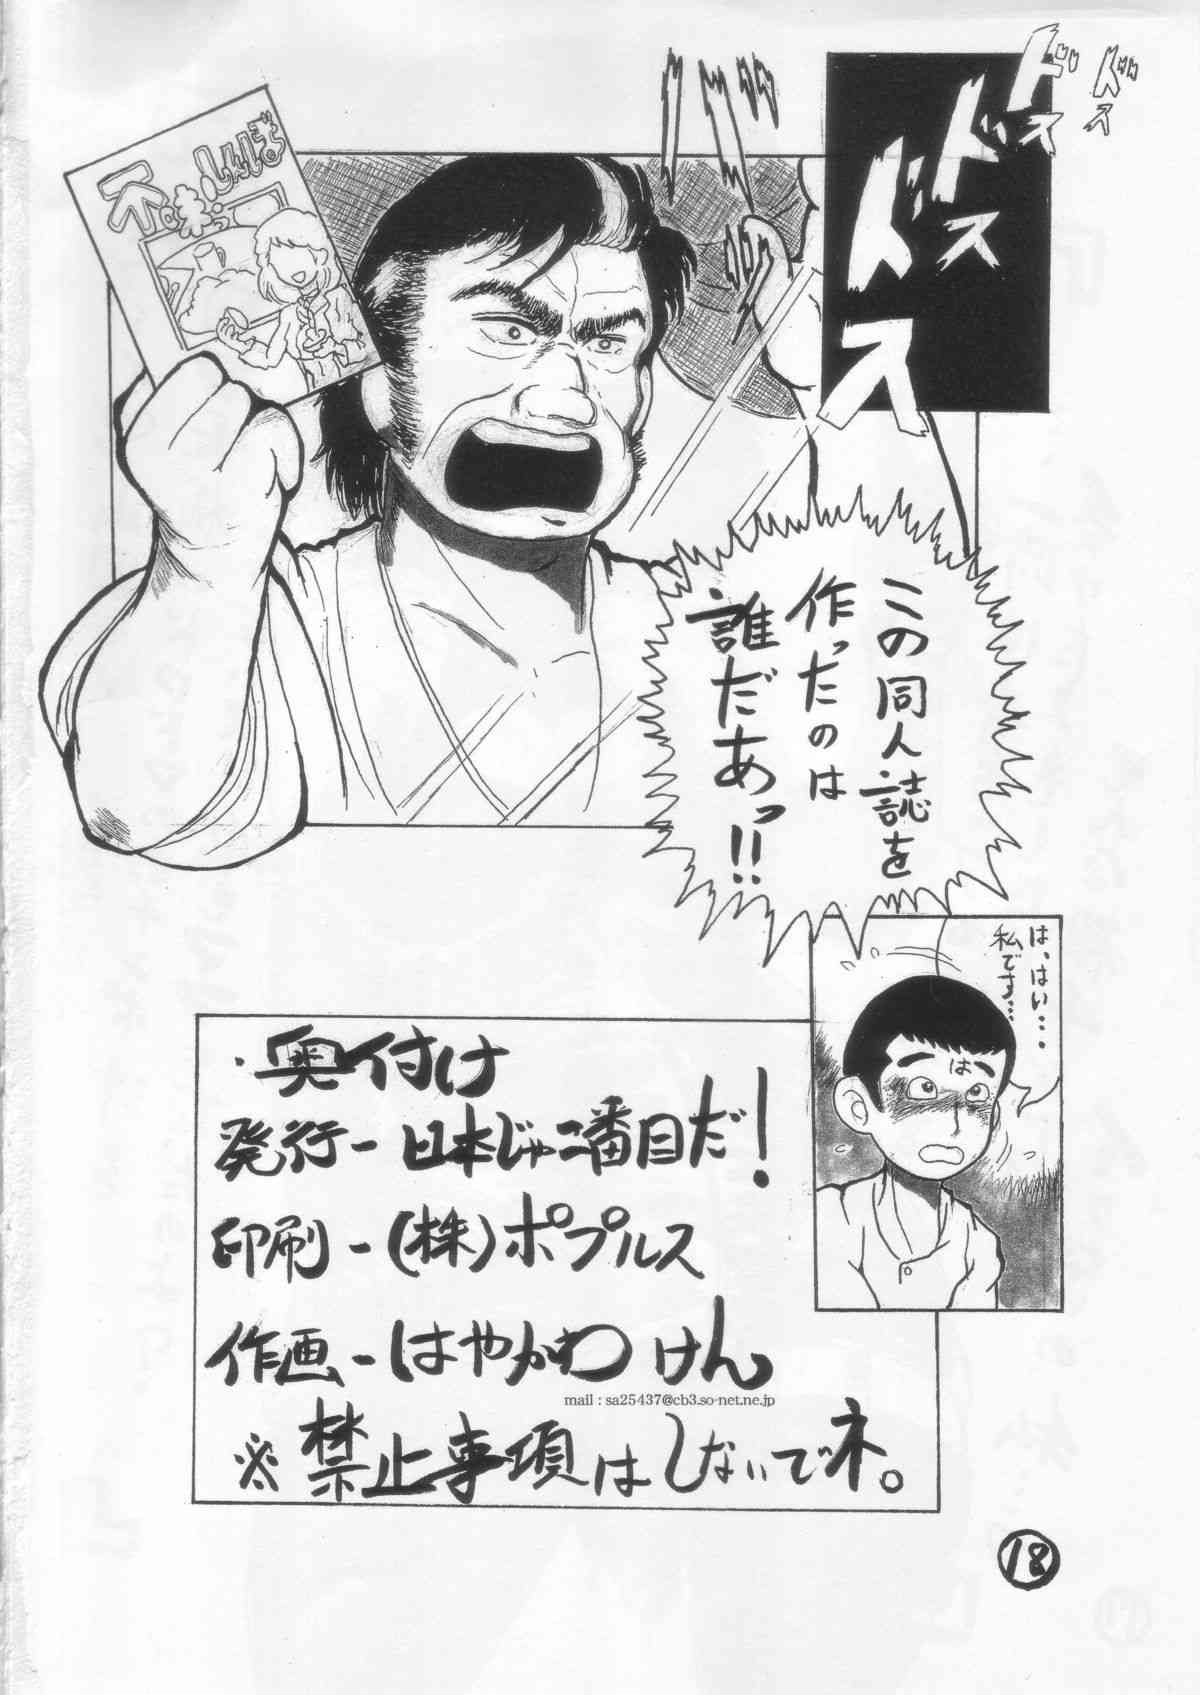 ドス
ドス
ドス
ドス
不味しんぼ
この同人誌を
作ったのは
誰だあっ!!
は、はい・・・
私です・・・
は
・奥付け
発行-日本じゃ二番目だ!
印刷-(株)ポプルス
作画-はやかわけん
mail : sa25437@cb3.so-net.ne.jp
※禁止事項はしないでネ。
18